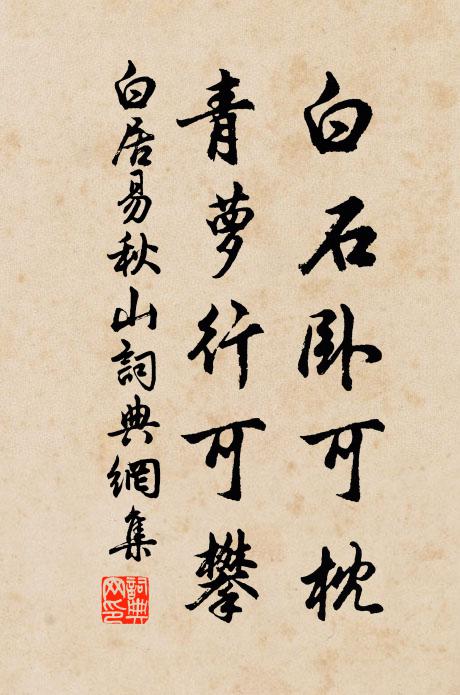 白石卧可枕
青萝行可攀
白居易秋山詞典網集
詞典网印